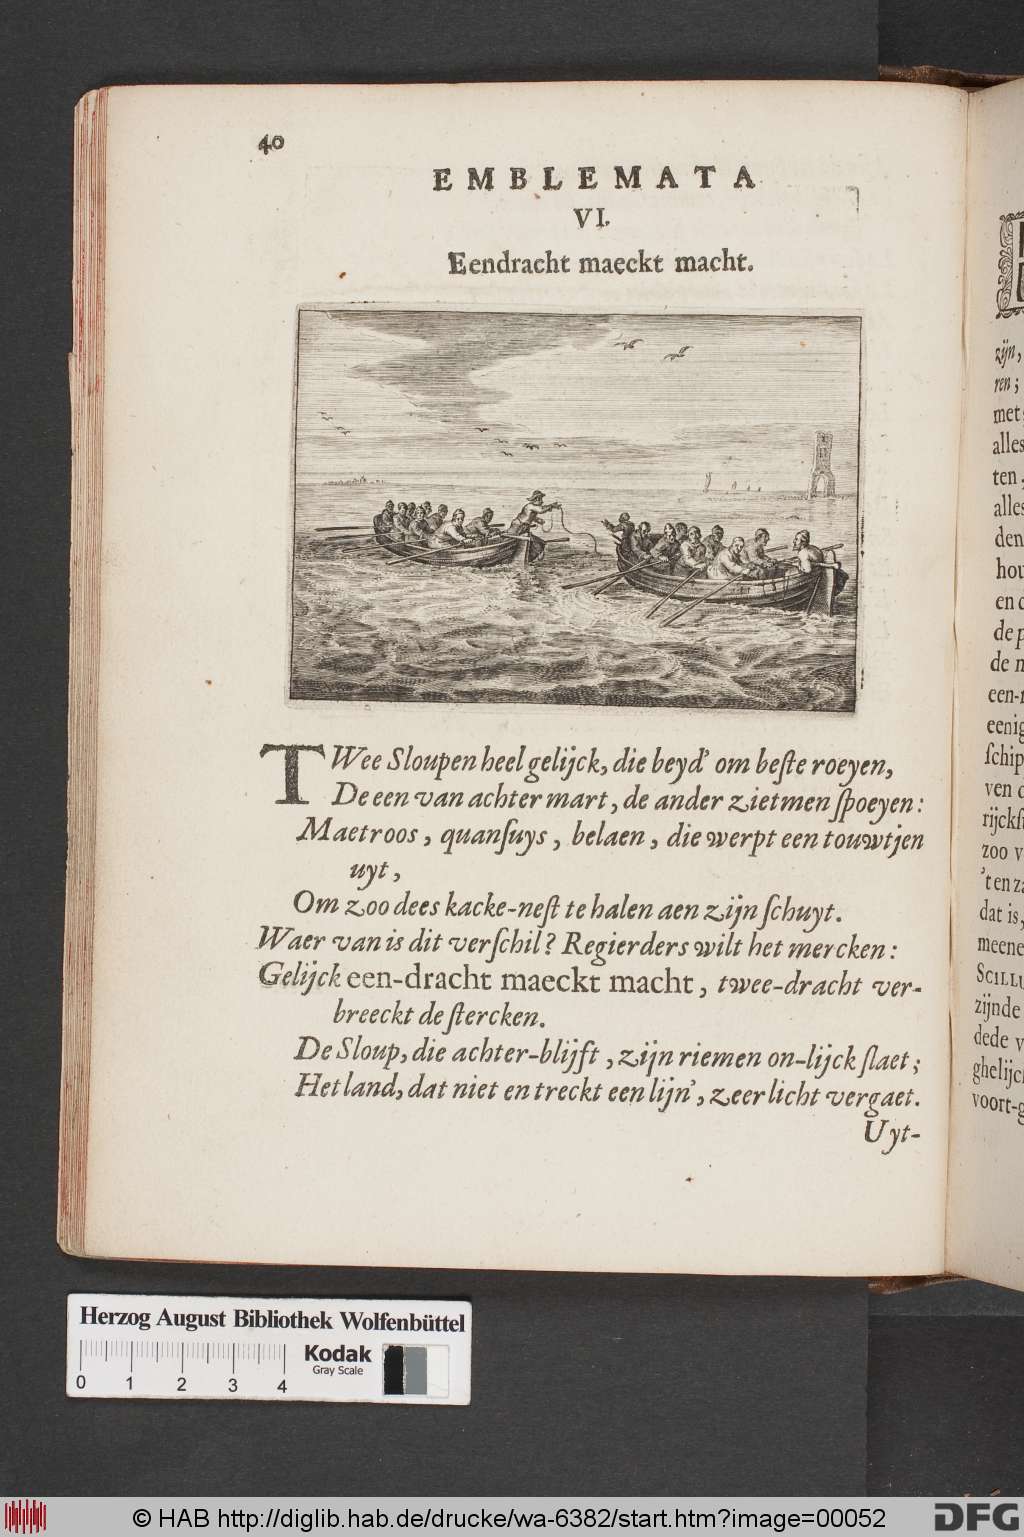 40
EMBLEMATA
VI.
Eendracht maeckt macht.
TWee Sloupen heel gelijck, die beyd' om beſte roeyen,
De een van achter mart, de ander zietmen ſpoeyen:
Maetroos, quanſuys, belaen, die werpt een touwtjen
uyt,
Om zoo dees kacke-neſt te halen aen zijn ſchuyt.
Waer van is dit verſchil? Regierders wilt het mercken:
Gelijck een-dracht maeckt macht, twee-dracht ver-
breeckt de ſtercken.
De Sloup, die achter-blijft, zijn riemen on-lijck ſlaet;
Het land, dat niet en treckt een lijn', zeer licht vergaet.
Uyt-
zijn,
ren;
met
alles
ten,
alles
den
hou
en
de
de
een-
eenig
ſchip
ven
rijckſ
zoo
't en
dat is,
meene
SCILLU
zijnde
dede
ghelijc
voort-g
Herzog August Bibliothek Wolfenbüttel
Kodak
Gray Scale
0 1 2 3 4
© HAB http://diglib.hab.de/drucke/wa-6382/start.htm?image=00052
DFG